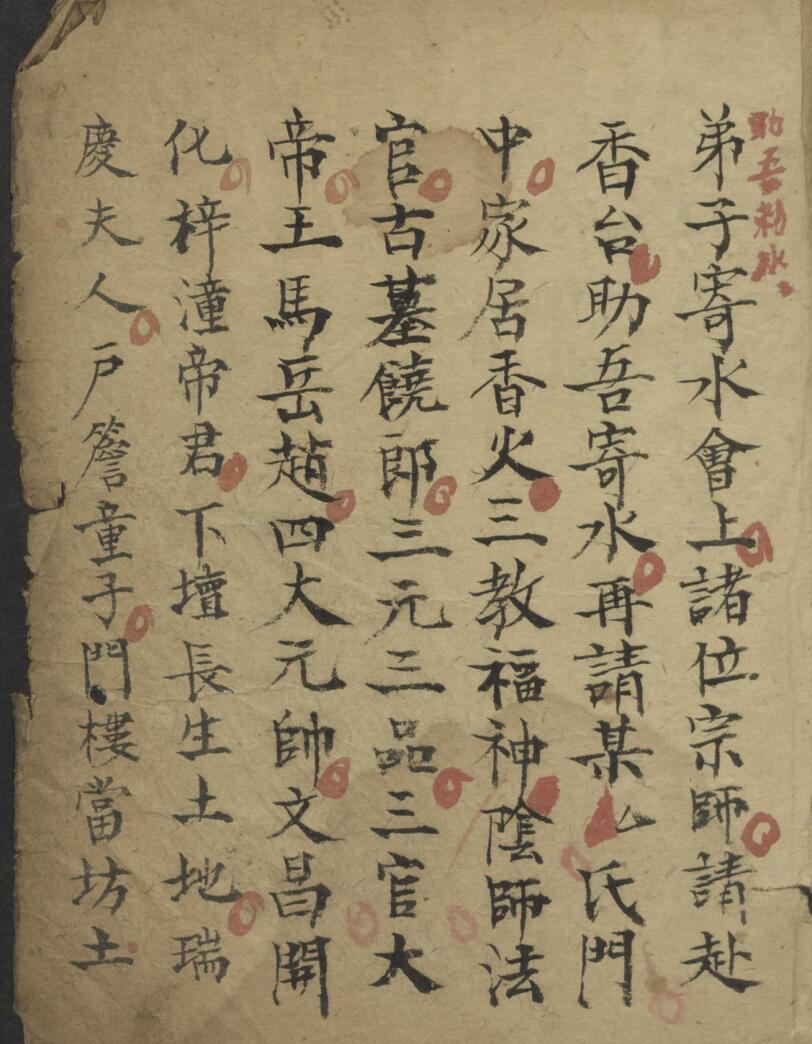 助吾勅水
弟子寄水會上諸位宗師請赴
香台助吾寄水再請某厶氏門
中家居香火三教福神陰師法
官古墓饒郎三元三品三官大
帝王馬岳趙四大元帥文昌開
化梓潼帝君下壇長生土地瑞
慶夫人戶簷童子門樓當坊土